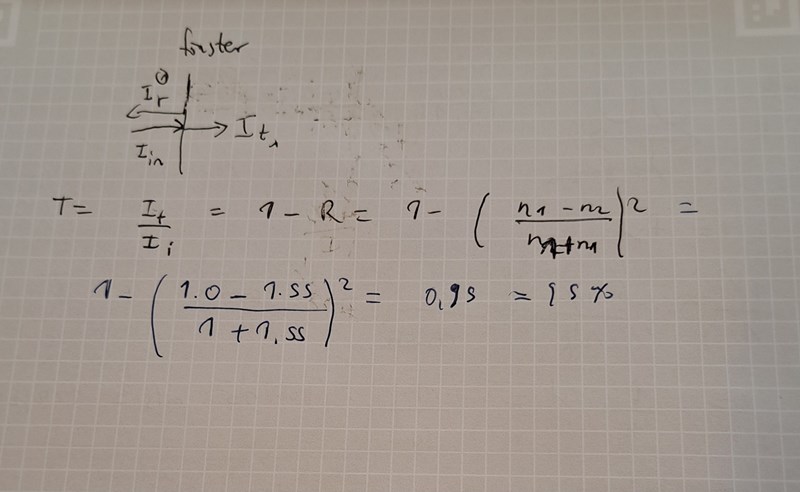 fönster
I_r
I_in
I_t1
T = I_t / I_i = 1 - R = 1 - ( (n1 - n2) / (n2 + n1) )^2 =
1 - ( (1.0 - 1.55) / (1 + 1.55) )^2 = 0,95 = 95 %